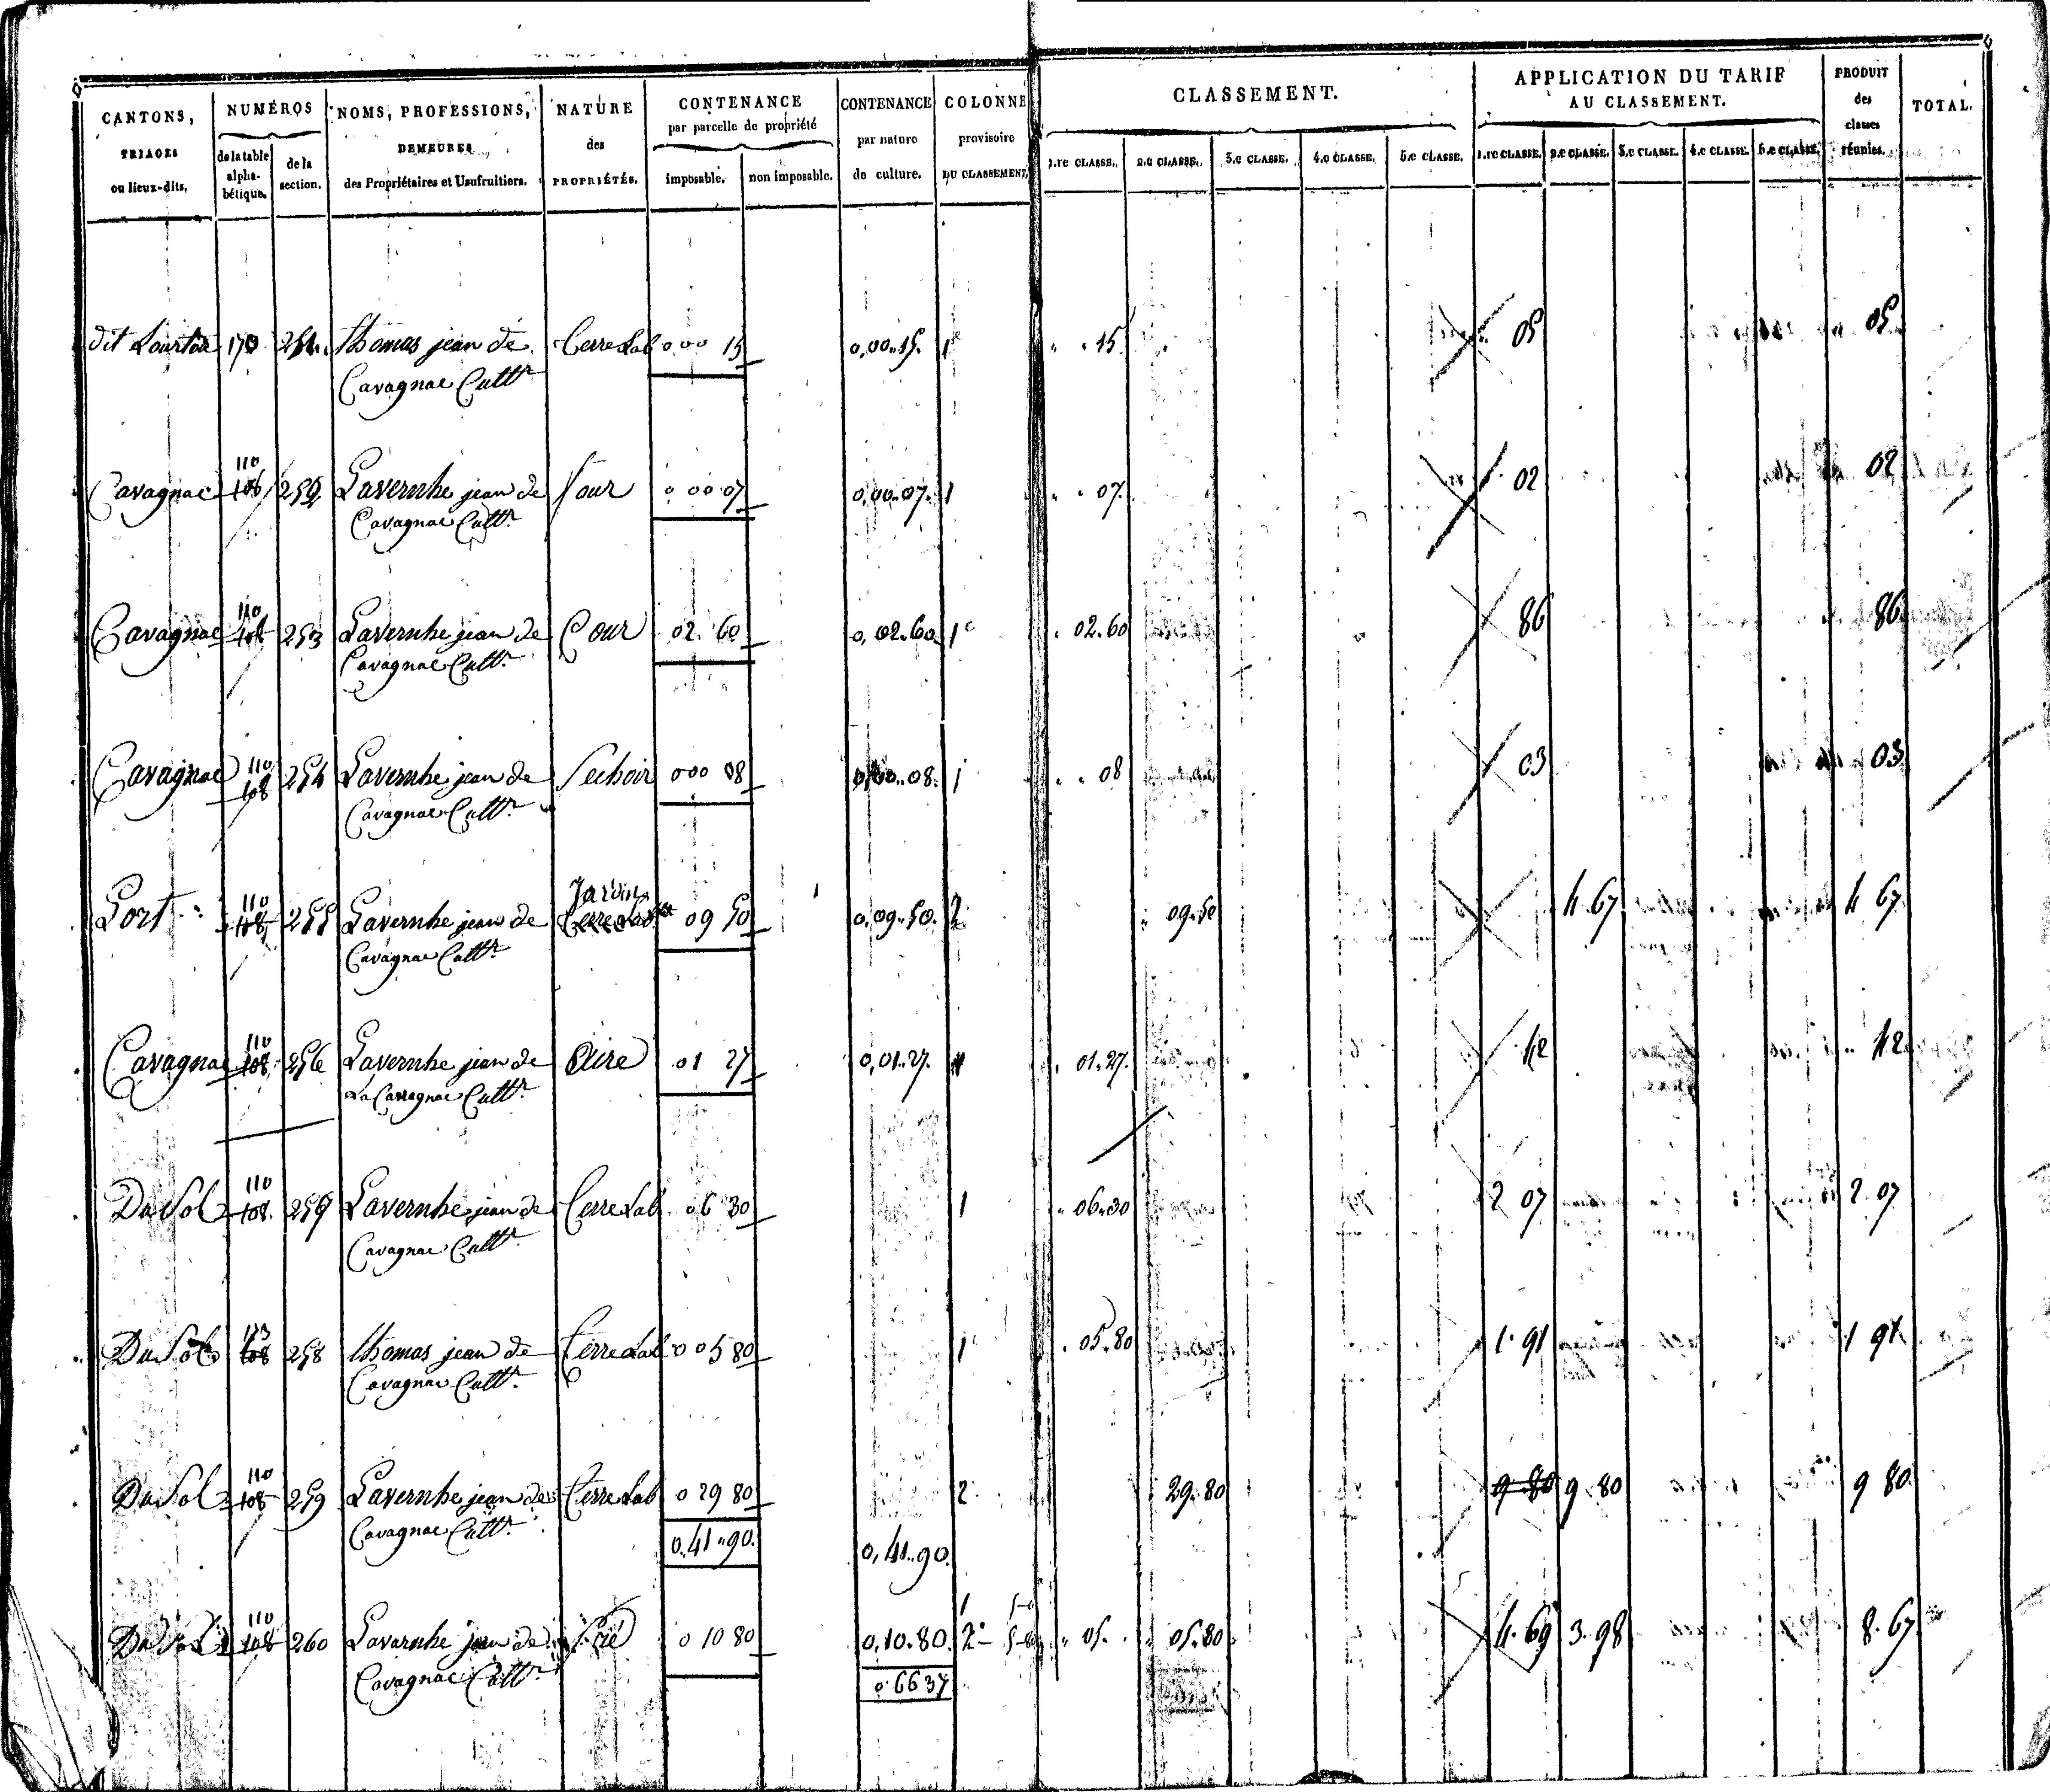 CANTONS, TRIAGES ou lieux-dits,
NUMÉROS
de la table alpha-bétique.
de la section.
NOMS, PROFESSIONS, DEMEURES des Propriétaires et Usufruitiers.
NATURE des PROPRIÉTÉS.
CONTENANCE par parcelle de propriété
imposable.
non imposable.
CONTENANCE par nature de culture.
COLONNE provisoire DU CLASSEMENT.
CLASSEMENT.
1.re CLASSE. 2.e CLASSE. 3.e CLASSE. 4.e CLASSE. 5.e CLASSE.
APPLICATION DU TARIF AU CLASSEMENT.
1.re CLASSE. 2.e CLASSE. 3.e CLASSE. 4.e CLASSE. 5.e CLASSE.
PRODUIT des classes réunies.
TOTAL.
dit 170 Thomas jean de Terre Lab 0 00 15 0,00..15. 1e 15. 05 05
Cavagnac Cultr
110
Cavagnac 108 252 Lavernhe jean de four 0 00 07 0,00..07. 1 07. 02 02
Cavagnac Cultr
110
Cavagnac 108 253 Lavernhe jean de Cour 02. 60 0,02..60 1e 02.60 86 86
Cavagnac Cultr
110
Cavagnac 108 254 Lavernhe jean de Sechoir 000 08 0,00..08. 1 08 03 03
Cavagnac Cultr
110 Jardin
Lort 108 255 Lavernhe jean de Terre Lab 09 50 0,09..50. 2 09..50 4.67 4 67
Cavagnac Cultr
110
Cavagnac 108 256 Lavernhe jean de Aire 01 27 0,01..27. 01..27. 42 42
Cavagnac Cultr
110
Du Sol 108 257 Lavernhe jean de Terre Lab 06 30 1 06..30 2 07 2 07
Cavagnac Cultr
108 258 Thomas jean de Terre Lab 0 05 80 1 05..80 1.91 1 91
Cavagnac Cultr
110
Du Sol 108 259 Lavernhe jean de Terre Lab 0 29 80 2. 29..80 9 80 9 80 9 80.
Cavagnac Cultr
0,41..90. 0,41..90.
110 1
Du Sol 108 260 Lavernhe jean de Pré 0 10 80 0,10..80. 2e 05. 05..80 4.69 3.98 8.67
Cavagnac Cultr
0 66 37